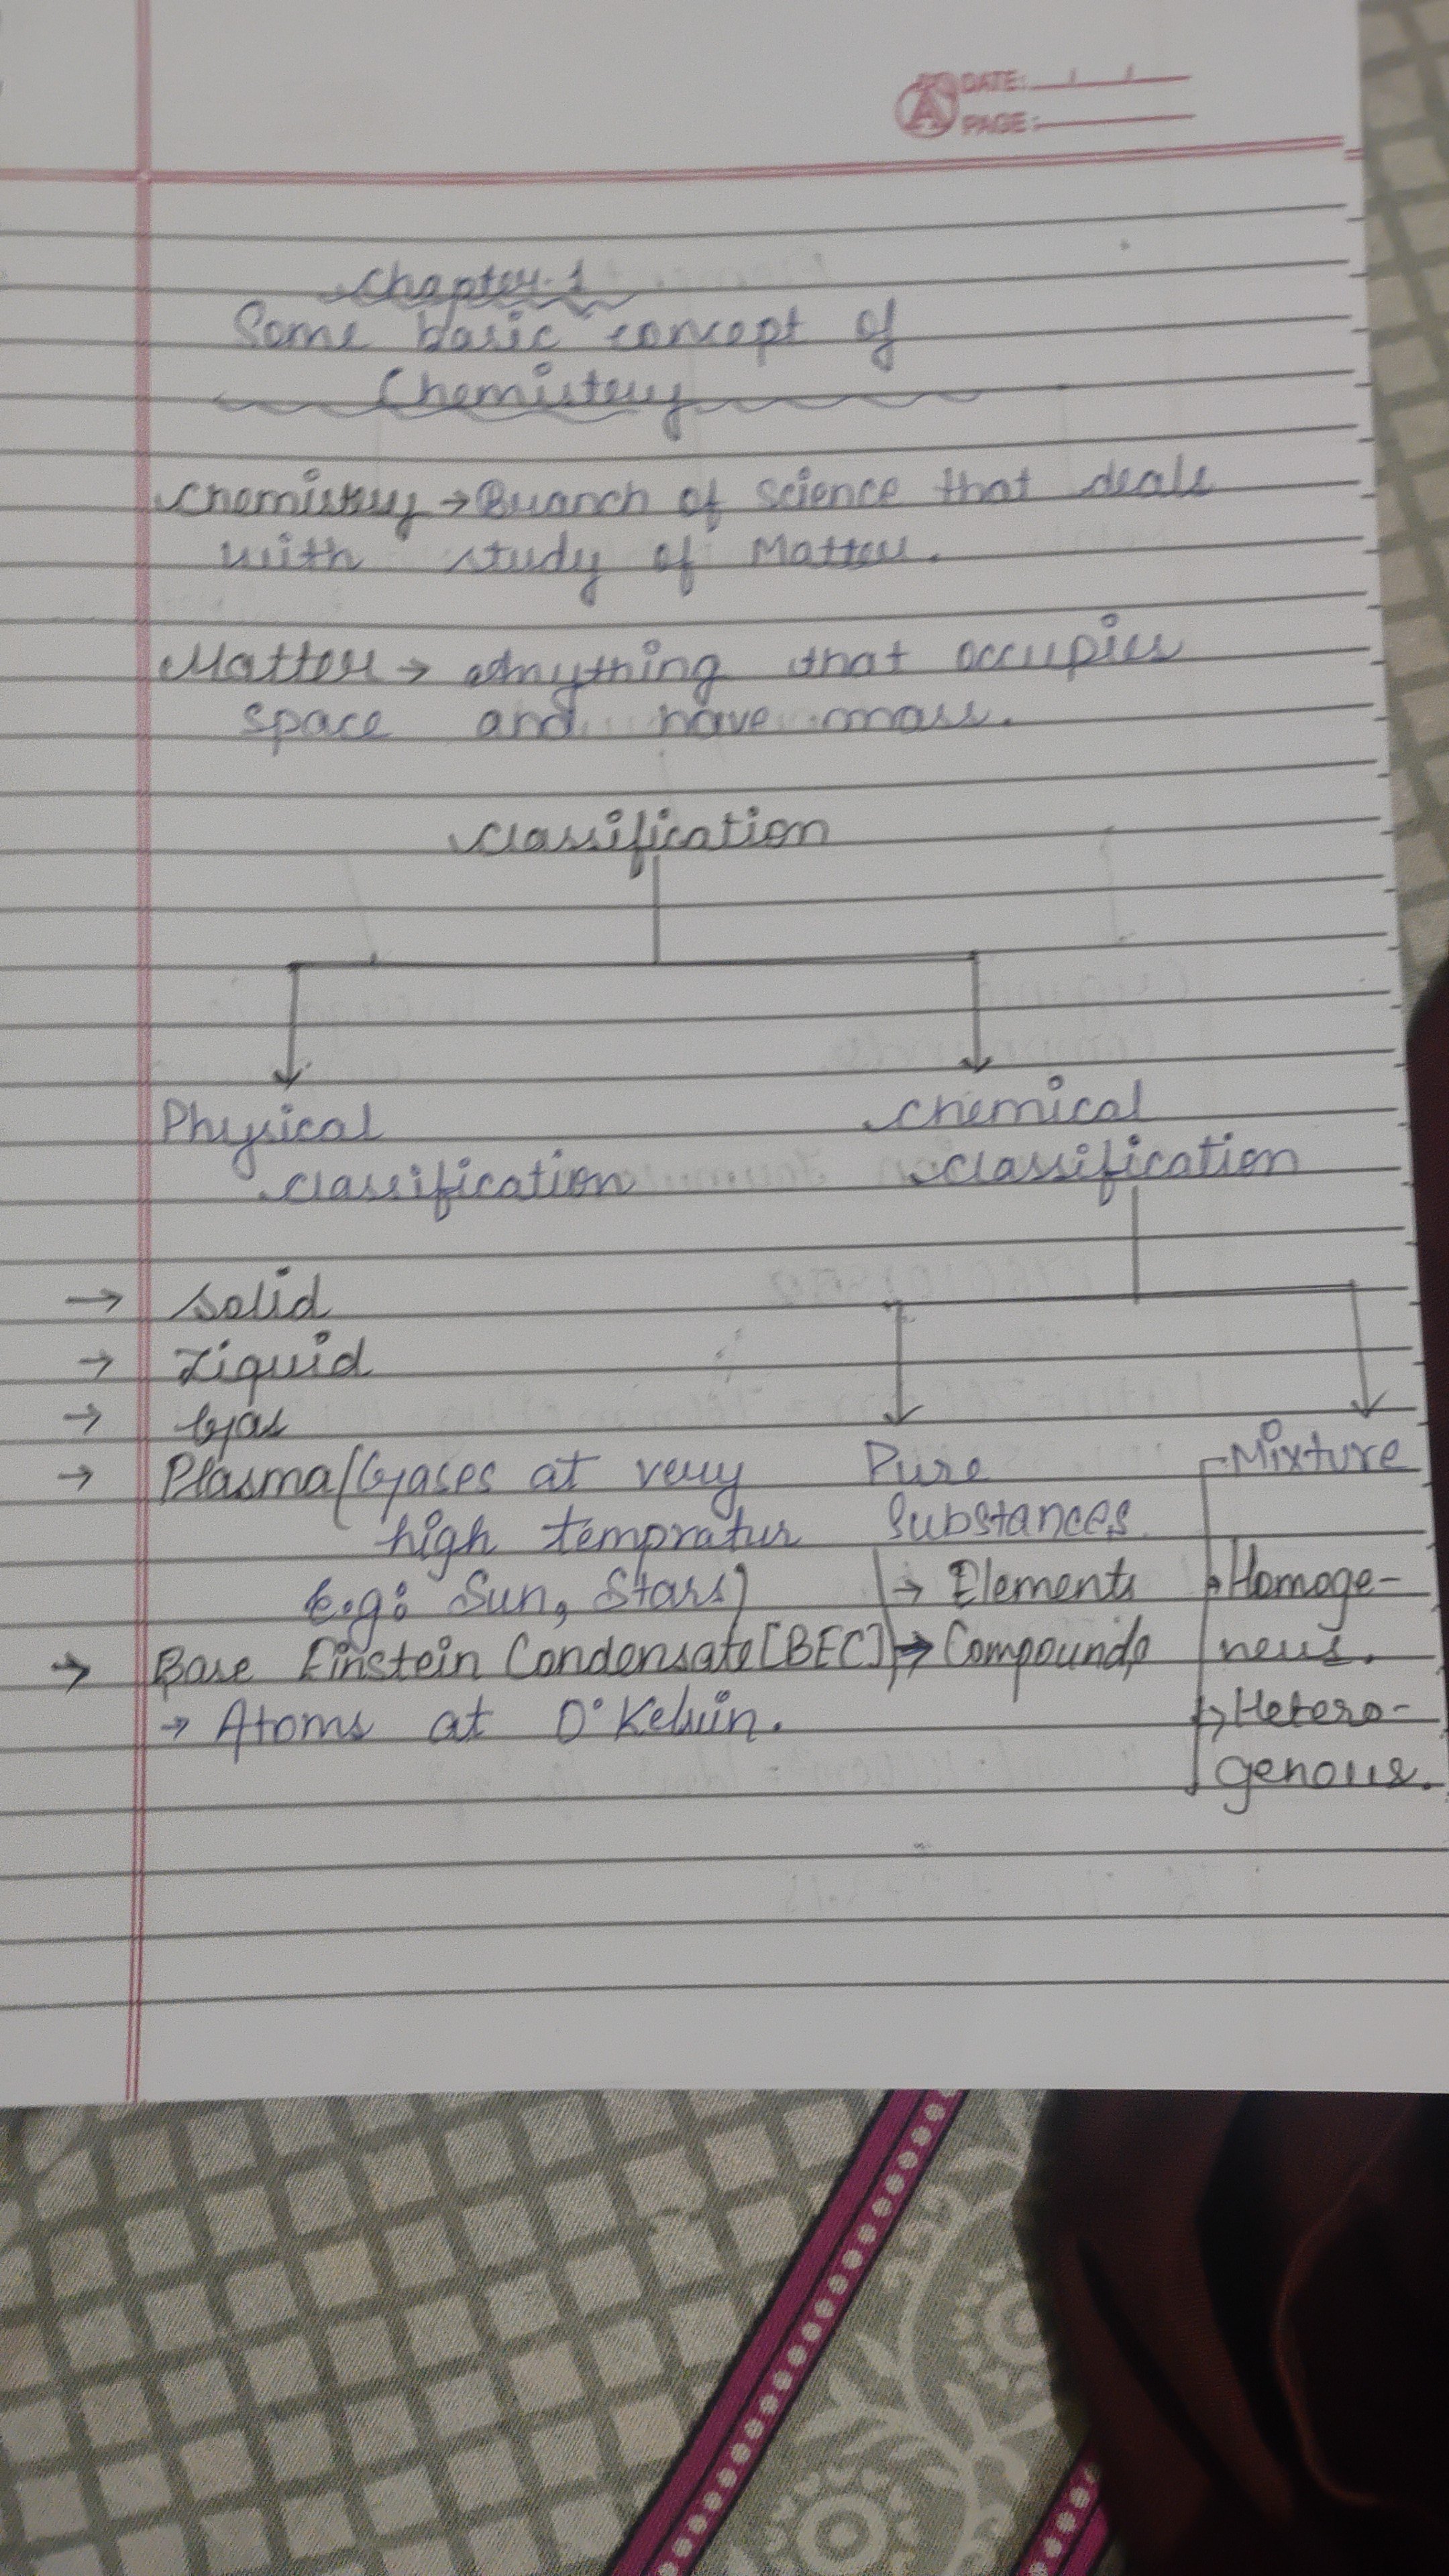 DATE:
PAGE:
Chapter-1
Some basic concept of
Chemistry
Chemistry → Branch of Science that deals
with study of Matter.
Matter → Anything that occupies
space and have mass.
Classification
Physical
classification
Chemical
classification
→ Solid
→ Liquid
→ Gas
→ Plasma (Gases at very
high tempratur
E.g: Sun, Stars)
→ Bose Einstein Condensate [BEC]
→ Atoms at 0° Kelvin.
Pure
Substances
→ Elements
→ Compounds
Mixture
→ Homoge-
neus.
→ Hetero-
genous.